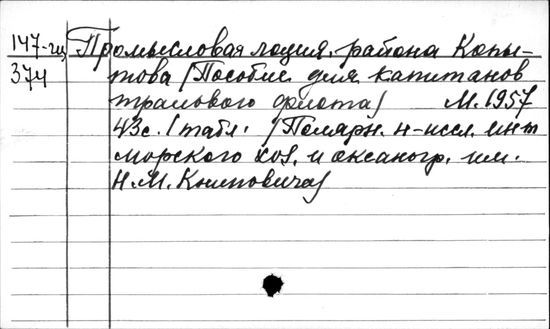 147-гц Промысловая лоция района Копы-
374 това (Пособие для капитанов
тралового флота) М. 1957
43с. 1 табл. (Полярн. н-иссл. инт
морского хоз. и океаногр. им.
Н.М. Книповича)